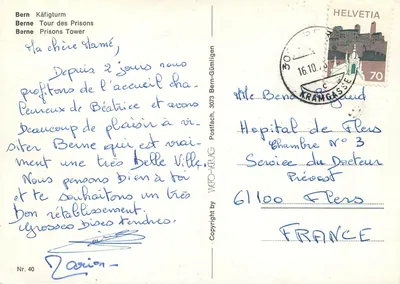 Bern Käfigturm
Berne Tour des Prisons
Berne Prisons Tower
Ma chère Mamé,
Depuis 2 jours nous
profitons de l'accueil cha-
leureux de Béatrice et avons
beaucoup de plaisir à vi-
siter Berne qui est vrai-
ment une très Belle Ville.
Nous pensons bien à toi
et te souhaitons un très
bon rétablissement.
grosses bises tendres.
Marion
Nr. 40
Copyright by
Postfach, 3073 Bern-Gümligen
HELVETIA
70
16.10.
KRAMGASSE
Hopital de Flers
Chambre N° 3
Service du Docteur
Prévost
61100 Flers
FRANCE